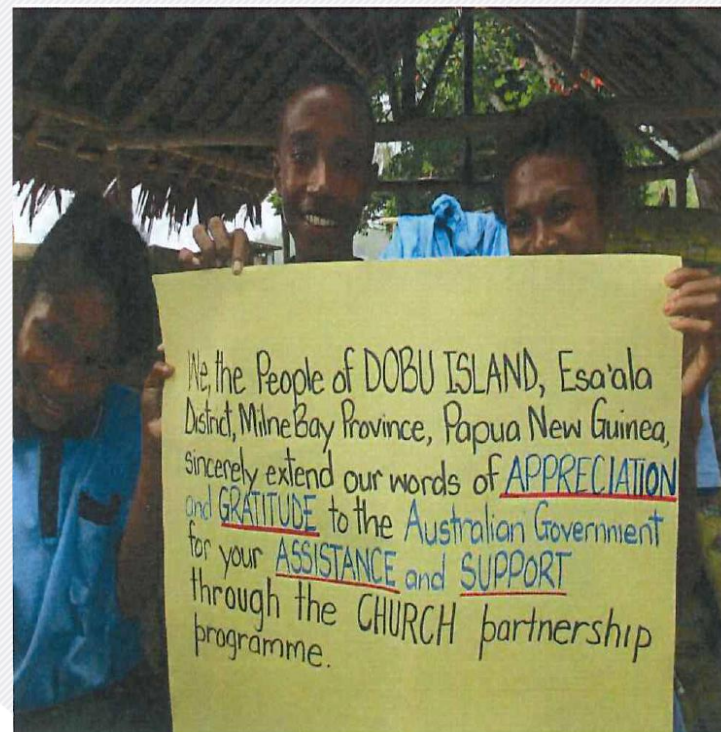 We, the People of DOBU ISLAND, Esa'ala
District, Milne Bay Province, Papua New Guinea,
sincerely extend our words of APPRECIATION
and GRATITUDE to the Australian Government
for your ASSISTANCE and SUPPORT
through the CHURCH partnership
programme.